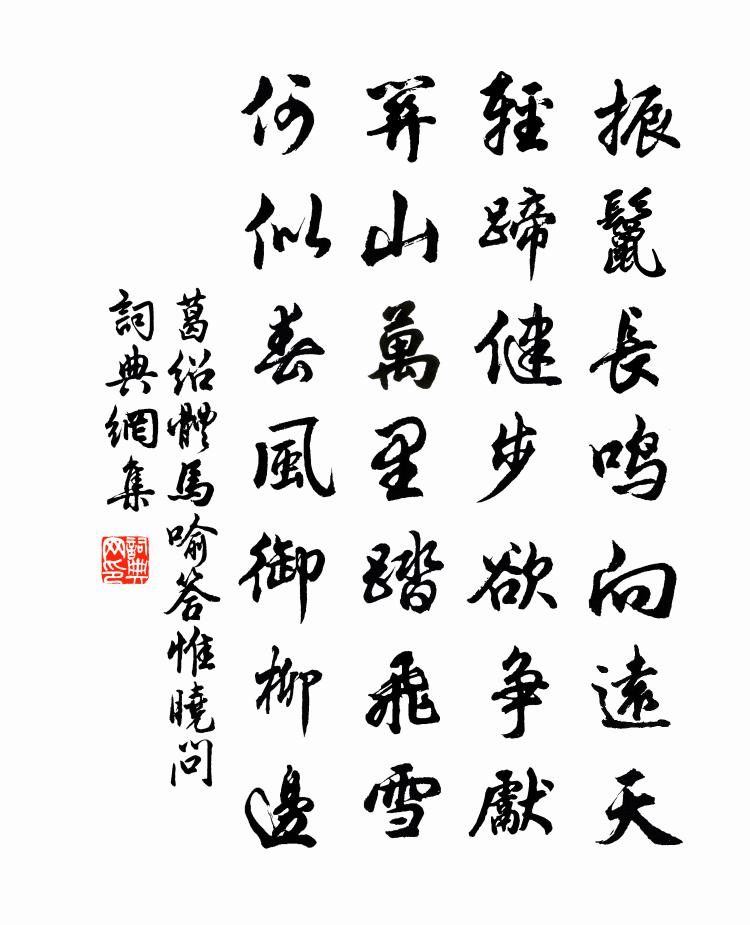 振鬣長鳴向遠天
輕蹄健步欲争獻
関山萬里踏飛雪
何似春風御柳邊
葛紹體馬喻答惟曉問
詞典網集
詞典网